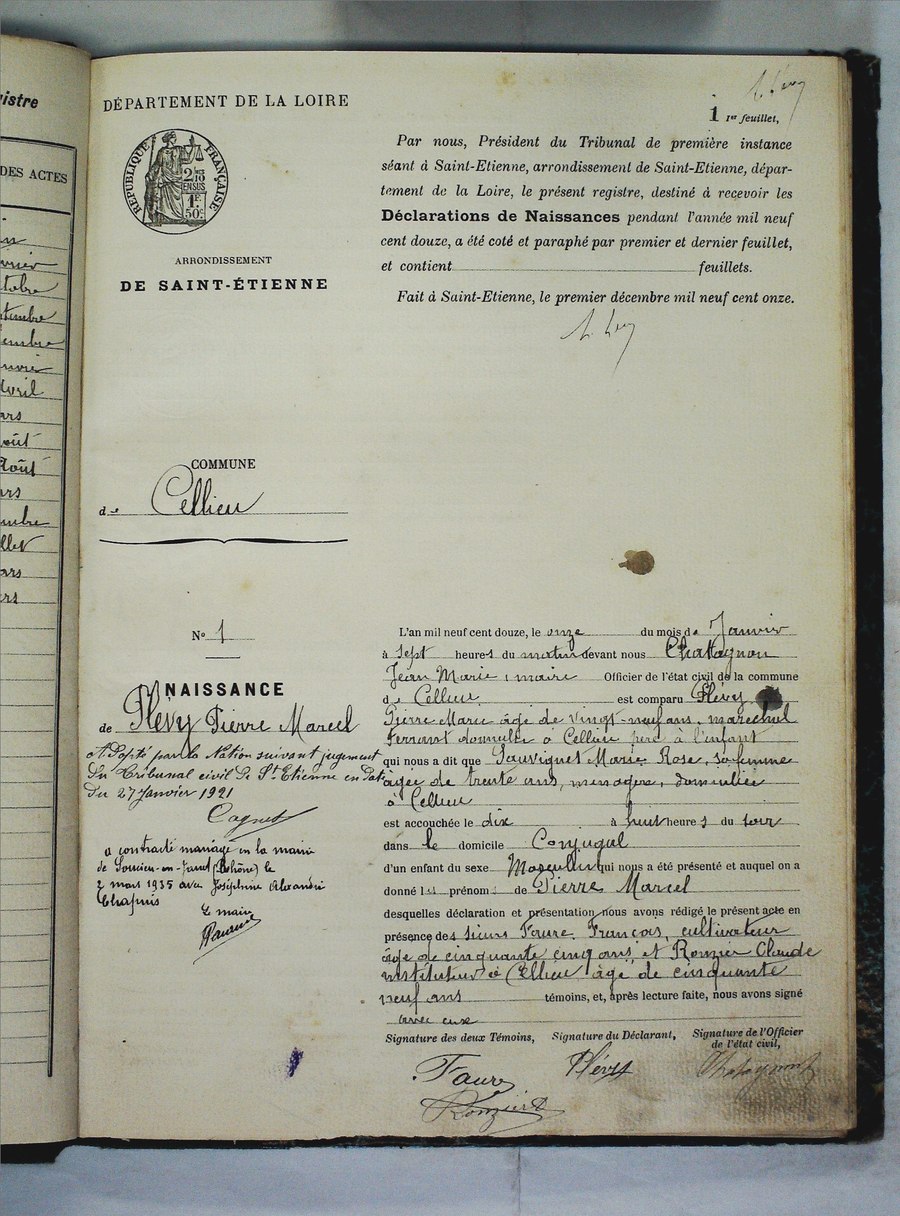 istre
DES ACTES
nvier
tobre
tembre
embre
nvier
Avril
ars
Août
Août
ars
embre
llet
ars
ers
DÉPARTEMENT DE LA LOIRE
RÉPUBLIQUE FRANÇAISE
2/10
EN SUS
1F
50c
ARRONDISSEMENT
DE SAINT-ÉTIENNE
COMMUNE
de Cellieu
N° 1
NAISSANCE
de Plévy Pierre Marcel
Adopté par la Nation suivant jugement
du Tribunal civil de St Etienne en date
du 27 Janvier 1921
Cagnet
a contracté mariage en la mairie
de Soucieu-en-Jarrest (Rhône) le
2 mars 1935 avec Joséphine Alexandrine
Chapuis
Le maire
1 1er feuillet,
Par nous, Président du Tribunal de première instance
séant à Saint-Etienne, arrondissement de Saint-Etienne, dépar-
tement de la Loire, le présent registre, destiné à recevoir les
Déclarations de Naissances pendant l'année mil neuf
cent douze, a été coté et paraphé par premier et dernier feuillet,
et contient feuillets.
Fait à Saint-Etienne, le premier décembre mil neuf cent onze.
L'an mil neuf cent douze, le onze du mois de Janvier
à sept heures du matin devant nous Chattagnon
Jean Marie, maire Officier de l'état civil de la commune
de Cellieu est comparu Plévy
Pierre Marie âgé de vingt-neuf ans, maréchal
Ferrant domicilié à Cellieu père à l'enfant
qui nous a dit que Sauvignet Marie Rose, sa femme
agée de trente ans, ménagère, domiciliée
à Cellieu
est accouchée le dix à huit heures du soir
dans le domicile Conjugal
d'un enfant du sexe Masculin qui nous a été présenté et auquel on a
donné les prénoms de Pierre Marcel
desquelles déclaration et présentation nous avons rédigé le présent acte en
présence des sieurs Faure François, cultivateur
âgé de cinquante cinq ans, et Ronzier Claude
instituteur à Cellieu âgé de cinquante
neuf ans témoins, et, après lecture faite, nous avons signé
avec eux
Signature des deux Témoins, Signature du Déclarant, Signature de l'Officier
de l'état civil,
Faure Plévy Chatagnon
Ronzier